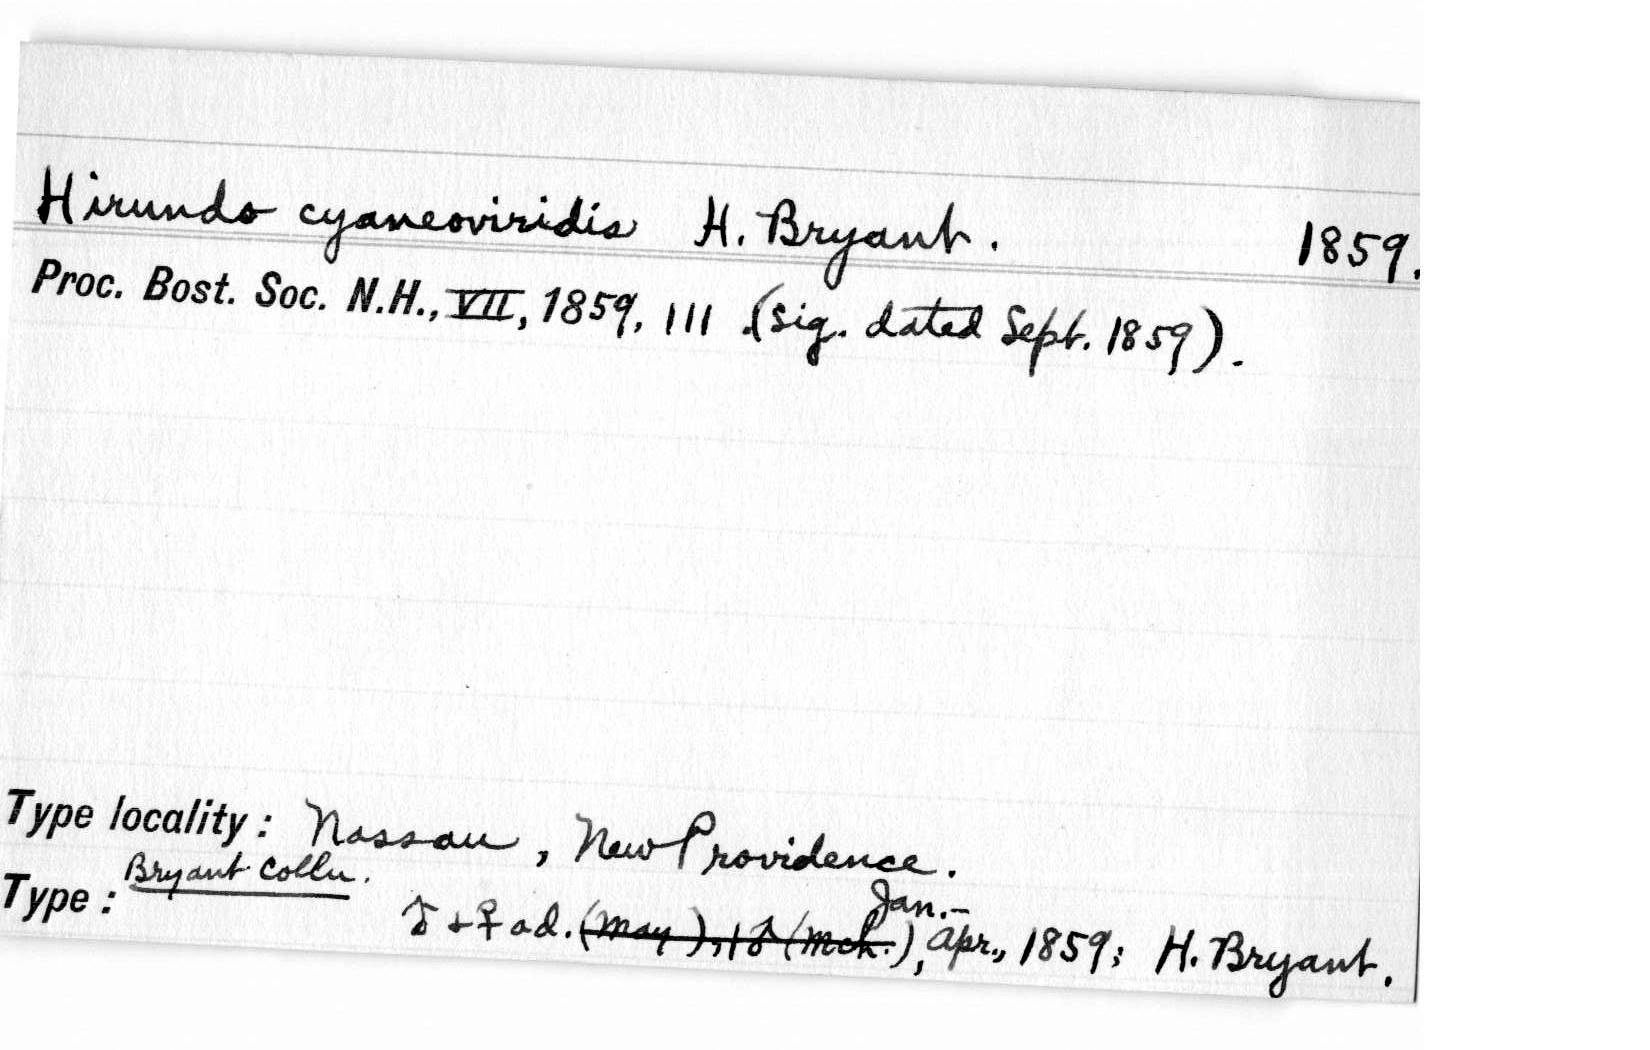 Hirundo cyaneoviridis H. Bryant. 1859.
Proc. Bost. Soc. N.H., VII, 1859, 111 (sig. dated Sept. 1859).
Type locality: Nassau, New Providence.
Type: Bryant Colln.
Jan.-
♂ + ♀ ad. (May), 1♂ (Mch.), Apr., 1859; H. Bryant.